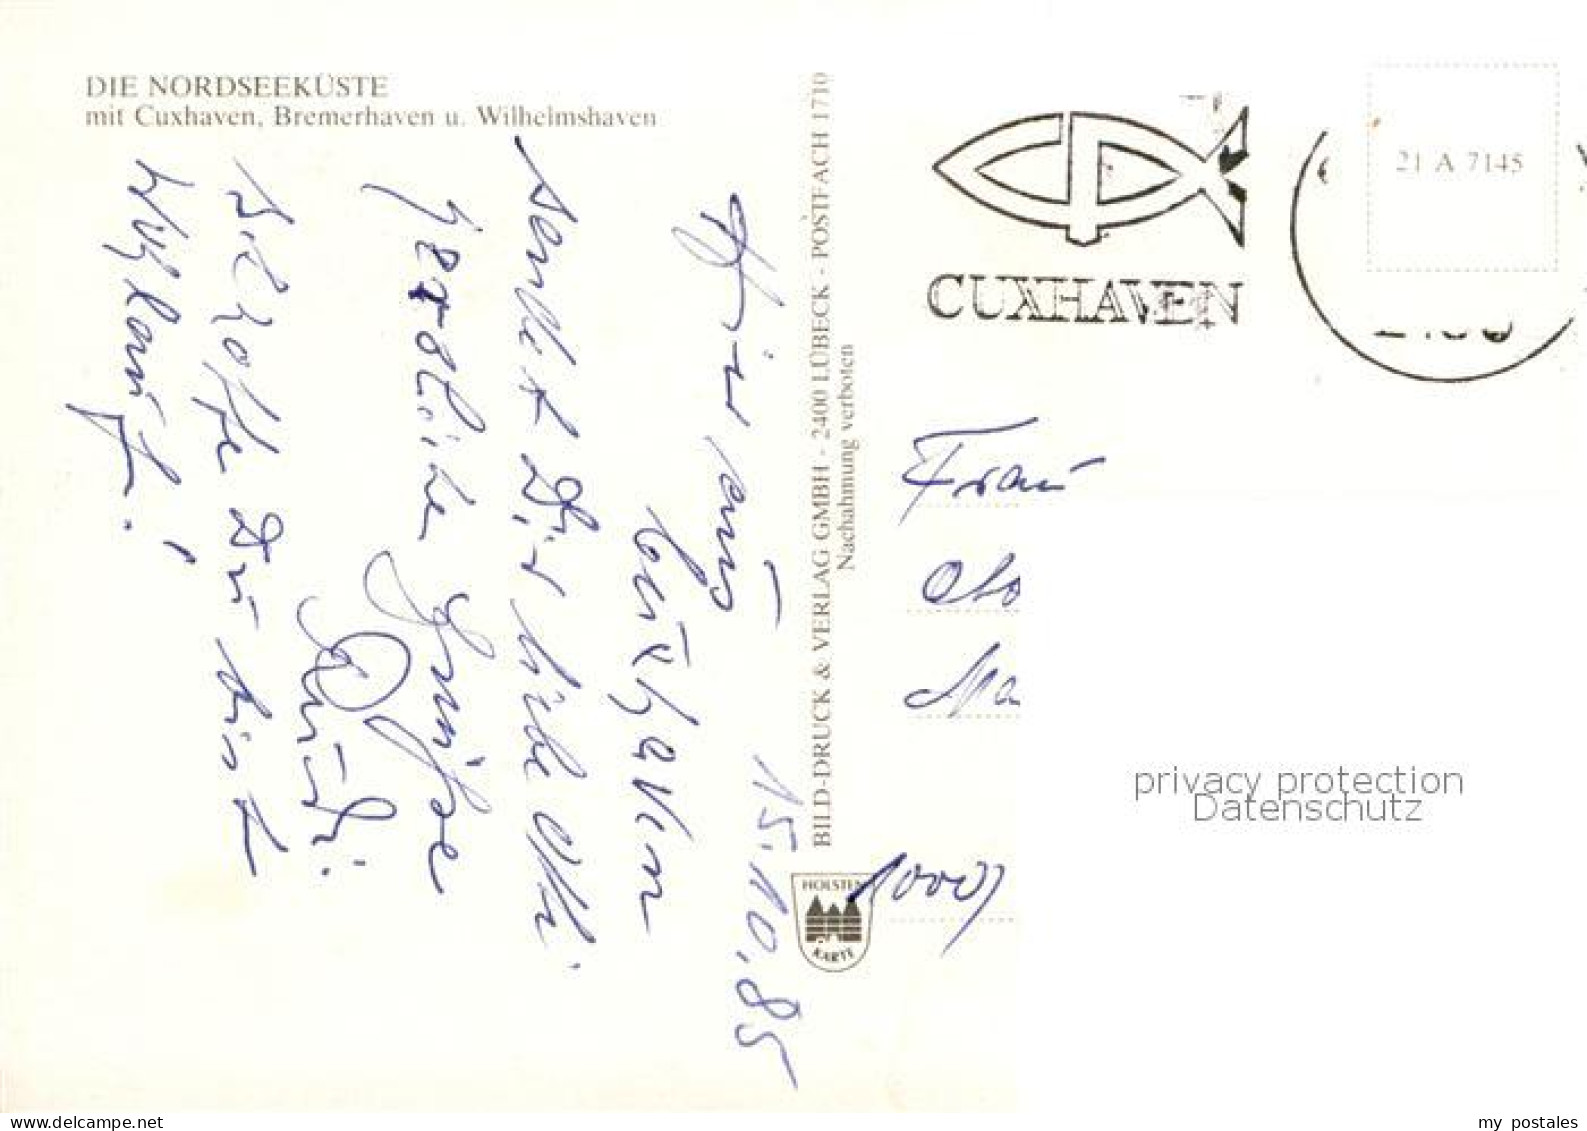 DIE NORDSEEKÜSTE
mit Cuxhaven, Bremerhaven u. Wilhelmshaven
15.10.85
Hier aus
Cuxhaven
sendet Dir liebe
herzliche Grüße
Ich hoffe Du bist
Wohlauf!
BILD-DRUCK & VERLAG GMBH - 2400 LÜBECK - POSTFACH 1710
Nachahmung verboten
HOLSTEN
KARTE
CUXHAVEN
21 A 7145
Frau
privacy protection
Datenschutz
oldthing.com
my postales